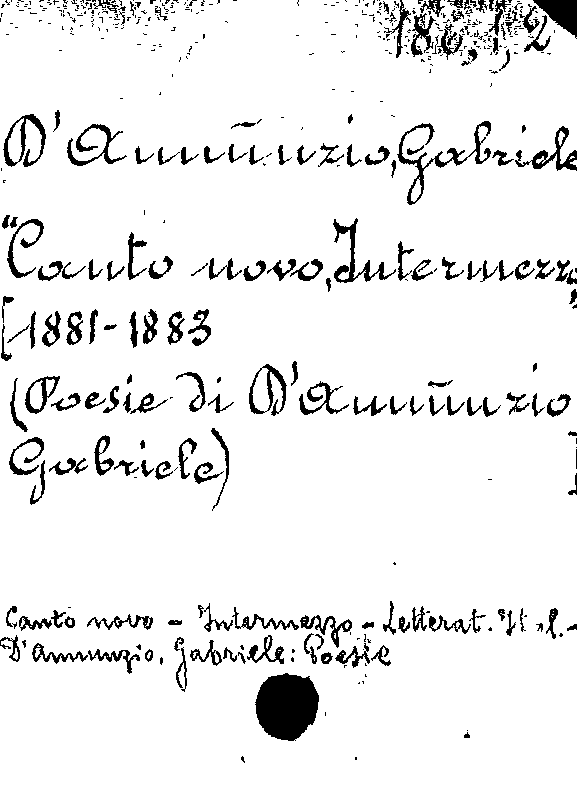 186,1,2
D'Annunzio, Gabriele
"Canto novo, Intermezzo"
[1881-1883
(Poesie di D'Annunzio
Gabriele) ]
Canto novo - Intermezzo - Letterat. Ital. -
D'Annunzio, Gabriele: Poesie